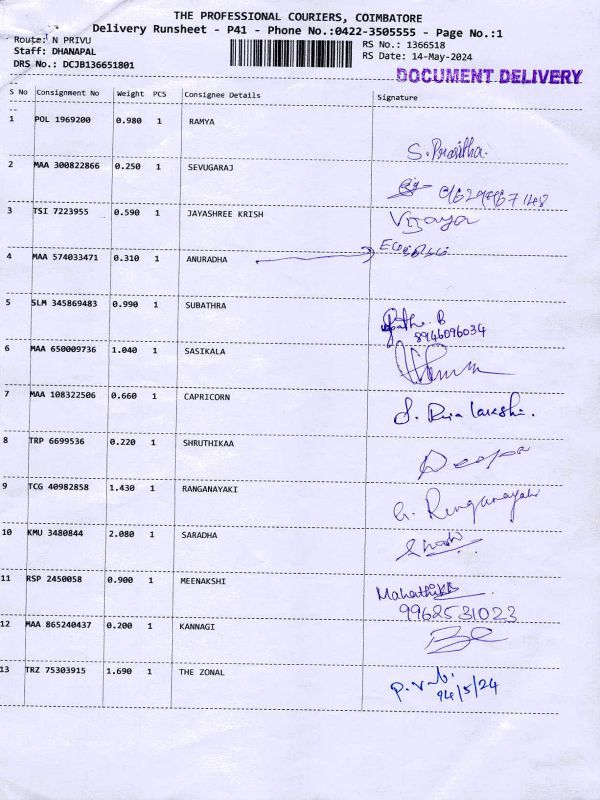 THE PROFESSIONAL COURIERS, COIMBATORE
Delivery Runsheet - P41 - Phone No.:0422-3505555 - Page No.:1
Route: N PRIVU
Staff: DHANAPAL
DRS No.: DCJB136651801
RS No.: 1366518
RS Date: 14-May-2024
DOCUMENT DELIVERY
S No Consignment No Weight PCS Consignee Details Signature
1 POL 1969200 0.980 1 RAMYA
S. Prasitha
2 MAA 300822866 0.250 1 SEVUGARAJ
3 TSI 7223955 0.590 1 JAYASHREE KRISH Vijaya
4 MAA 574033471 0.310 1 ANURADHA
5 SLM 345869483 0.990 1 SUBATHRA
B
8946096034
6 MAA 650009736 1.040 1 SASIKALA
7 MAA 108322506 0.660 1 CAPRICORN
8 TRP 6699536 0.220 1 SHRUTHIKAA Deepa
9 TCG 40982858 1.430 1 RANGANAYAKI G. Ranganayaki
10 KMU 3480844 2.080 1 SARADHA
11 RSP 2450058 0.900 1 MEENAKSHI
9962531023
12 MAA 865240437 0.200 1 KANNAGI
13 TRZ 75303915 1.690 1 THE ZONAL
14/5/24